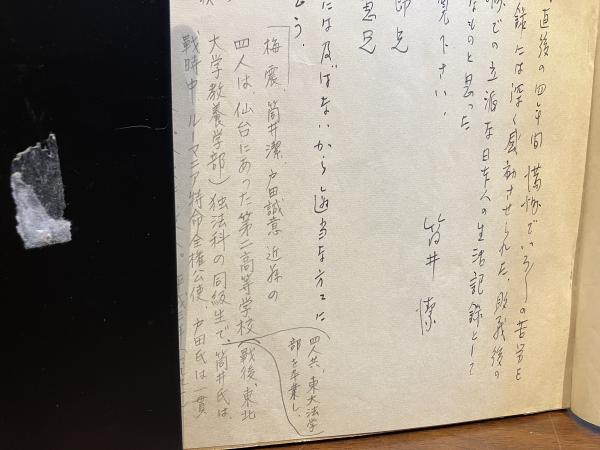 直後の四年間 惜敗でいろいろの苦労を
録には深く感動させられた、敗戦後の
での立派な日本人の生活記録として
なものと思った
見下さい、
筒井 潔
郎兄
恵兄
には及ばないから適当な方々に
う.
「梅 震、筒井潔、戸田誠意 近森の
四人は、仙台にあった第二高等学校(戦後、東北
大学教養学部)独法科の同級生で、筒井氏は、
戦時中ルーマニア特命全権公使、戸田氏は一貫
四人共、東大法学
部を卒業し、